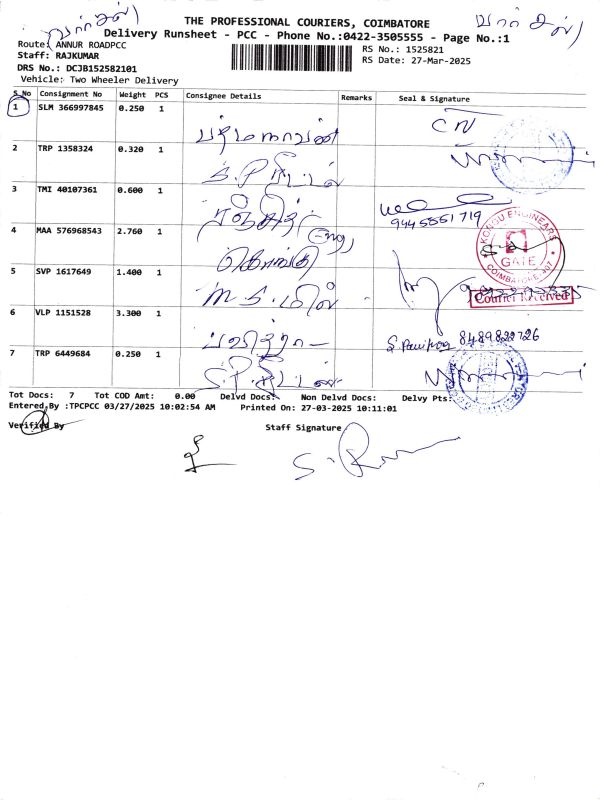 பார்சல்)
பார்சல்)
THE PROFESSIONAL COURIERS, COIMBATORE
Delivery Runsheet - PCC - Phone No.:0422-3505555 - Page No.:1
Route: ANNUR ROADPCC
RS No.: 1525821
Staff: RAJKUMAR
RS Date: 27-Mar-2025
DRS No.: DCJB152582101
Vehicle: Two Wheeler Delivery
S.No Consignment No Weight PCS Consignee Details Remarks Seal & Signature
1 SLM 366997845 0.250 1
2 TRP 1358324 0.320 1 S.P
3 TMI 40107361 0.600 1 ரஞ்சித் (Eng) 9445551719
4 MAA 576968543 2.760 1 கொங்கு
KONGU ENGINEERS
GATE
COIMBATORE
5 SVP 1617649 1.400 1 M.S. மில்
Courier Received
6 VLP 1151528 3.300 1 பவித்ரா 8489822726
7 TRP 6449684 0.250 1 S.P.
Tot Docs: 7 Tot COD Amt: 0.00 Delvd Docs: Non Delvd Docs: Delvy Pts:
Entered By :TPCPCC 03/27/2025 10:02:54 AM Printed On: 27-03-2025 10:11:01
Verified By Staff Signature